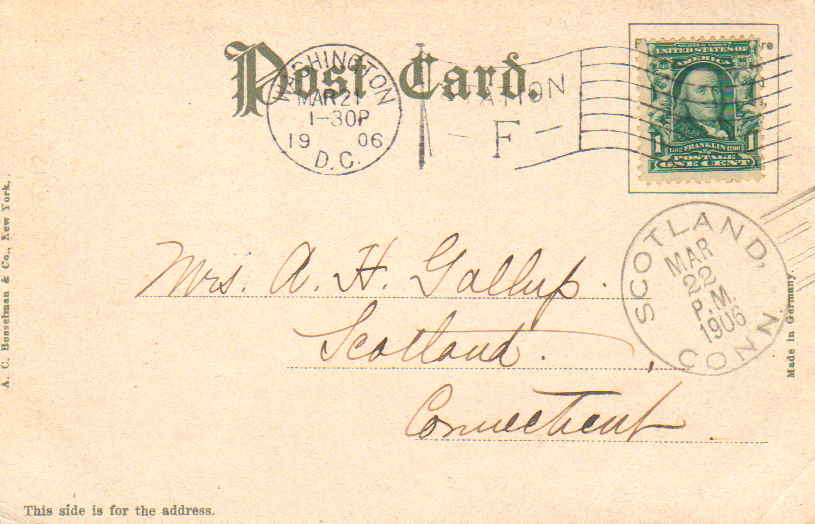 Post Card.
WASHINGTON
MAR 21
1-30P
19 06
D.C.
F
UNITED STATES OF
AMERICA
1 FRANKLIN 1
POSTAGE
ONE CENT
SCOTLAND,
MAR
22
P.M.
1906
CONN.
Mrs. A. H. Gallup.
Scotland.
Connecticut
A. C. Bosselman & Co., New York.
Made in Germany.
This side is for the address.